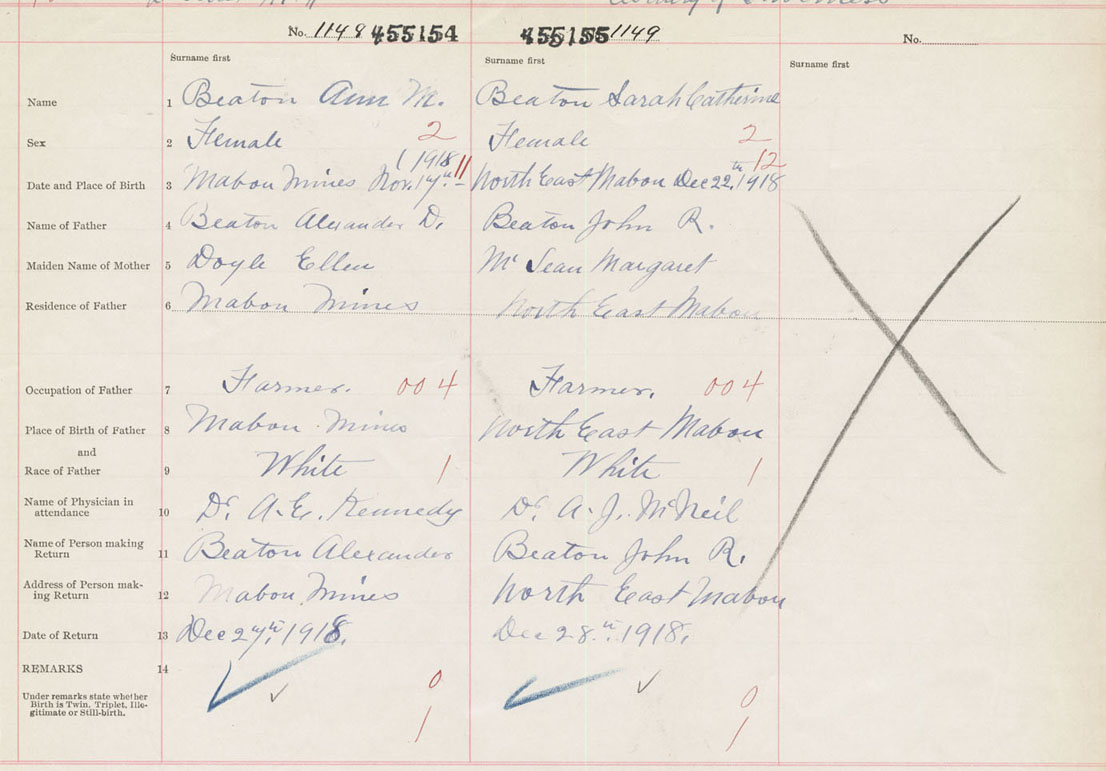 No. 1148 455154 455155 1149 No.
Surname first Surname first Surname first
Name 1 Beaton Ann M. Beaton Sarah Catherine
Sex 2 Female 2 Female 2
1918 11 12
Date and Place of Birth 3 Mabou Mines Nov. 17th North East Mabou Dec 22th, 1918
Name of Father 4 Beaton Alexander D. Beaton John R.
Maiden Name of Mother 5 Doyle Ellen Margaret
Residence of Father 6 Mabou Mines North East Mabou
Occupation of Father 7 Farmer. 004 Farmer. 004
Place of Birth of Father 8 Mabou Mines North East Mabou
and
Race of Father 9 White 1 White 1
Name of Physician in
attendance 10 Dr. A. E. Kennedy Dr. A. J. McNeil
Name of Person making
Return 11 Beaton Alexander Beaton John R.
Address of Person mak-
ing Return 12 Mabou Mines North East Mabou
Date of Return 13 Dec 27th, 1918. Dec 28th 1918.
REMARKS 14
0 0
Under remarks state whether
Birth is Twin, Triplet, Ille-
gitimate or Still-birth.
1 1